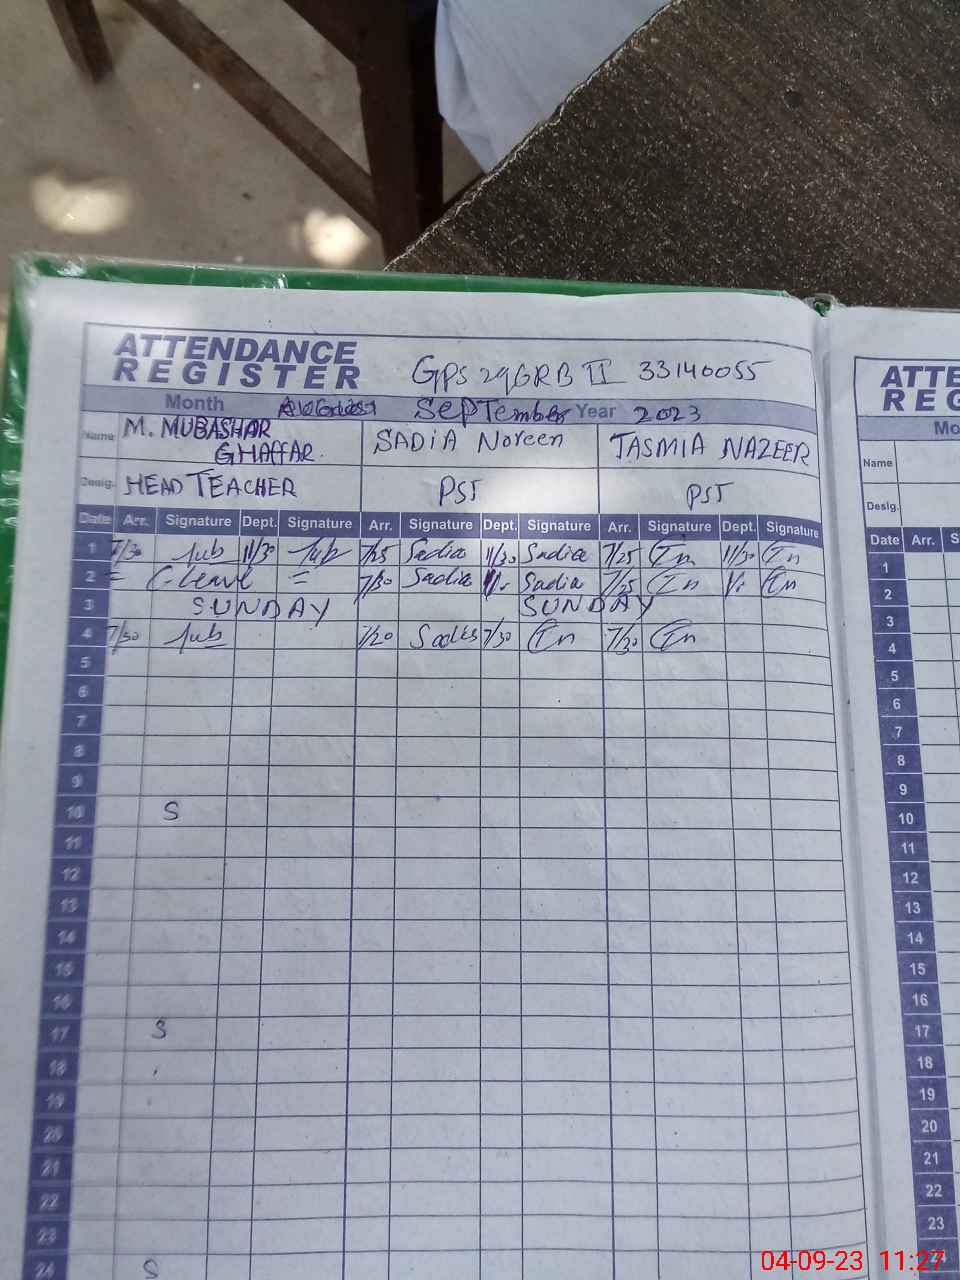 ATTENDANCE
REGISTER GPS 296RB II 33140055
Month September Year 2023
Name M. MUBASHAR GHAFFAR. SADIA Noreen TASMIA NAZEER
Desig. HEAD TEACHER PST PST
Date Arr. Signature Dept. Signature Arr. Signature Dept. Signature Arr. Signature Dept. Signature
1 7/30 11/30 7/25 Sadia 11/30 Sadia 7/25 11/30
2 = C-leave = 7/30 Sadia Sadia 7/25
3 SUNDAY SUNDAY
4 7/30 7/20 7/30 7/30
5
6
7
8
9
10 S
11
12
13
14
15
16
17 S
18
19
20
21
22
23
24 S
ATTE
REG
Mo
Name
Desig.
Date Arr. S
1
2
3
4
5
6
7
8
9
10
11
12
13
14
15
16
17
18
19
20
21
22
23
24
04-09-23 11:27